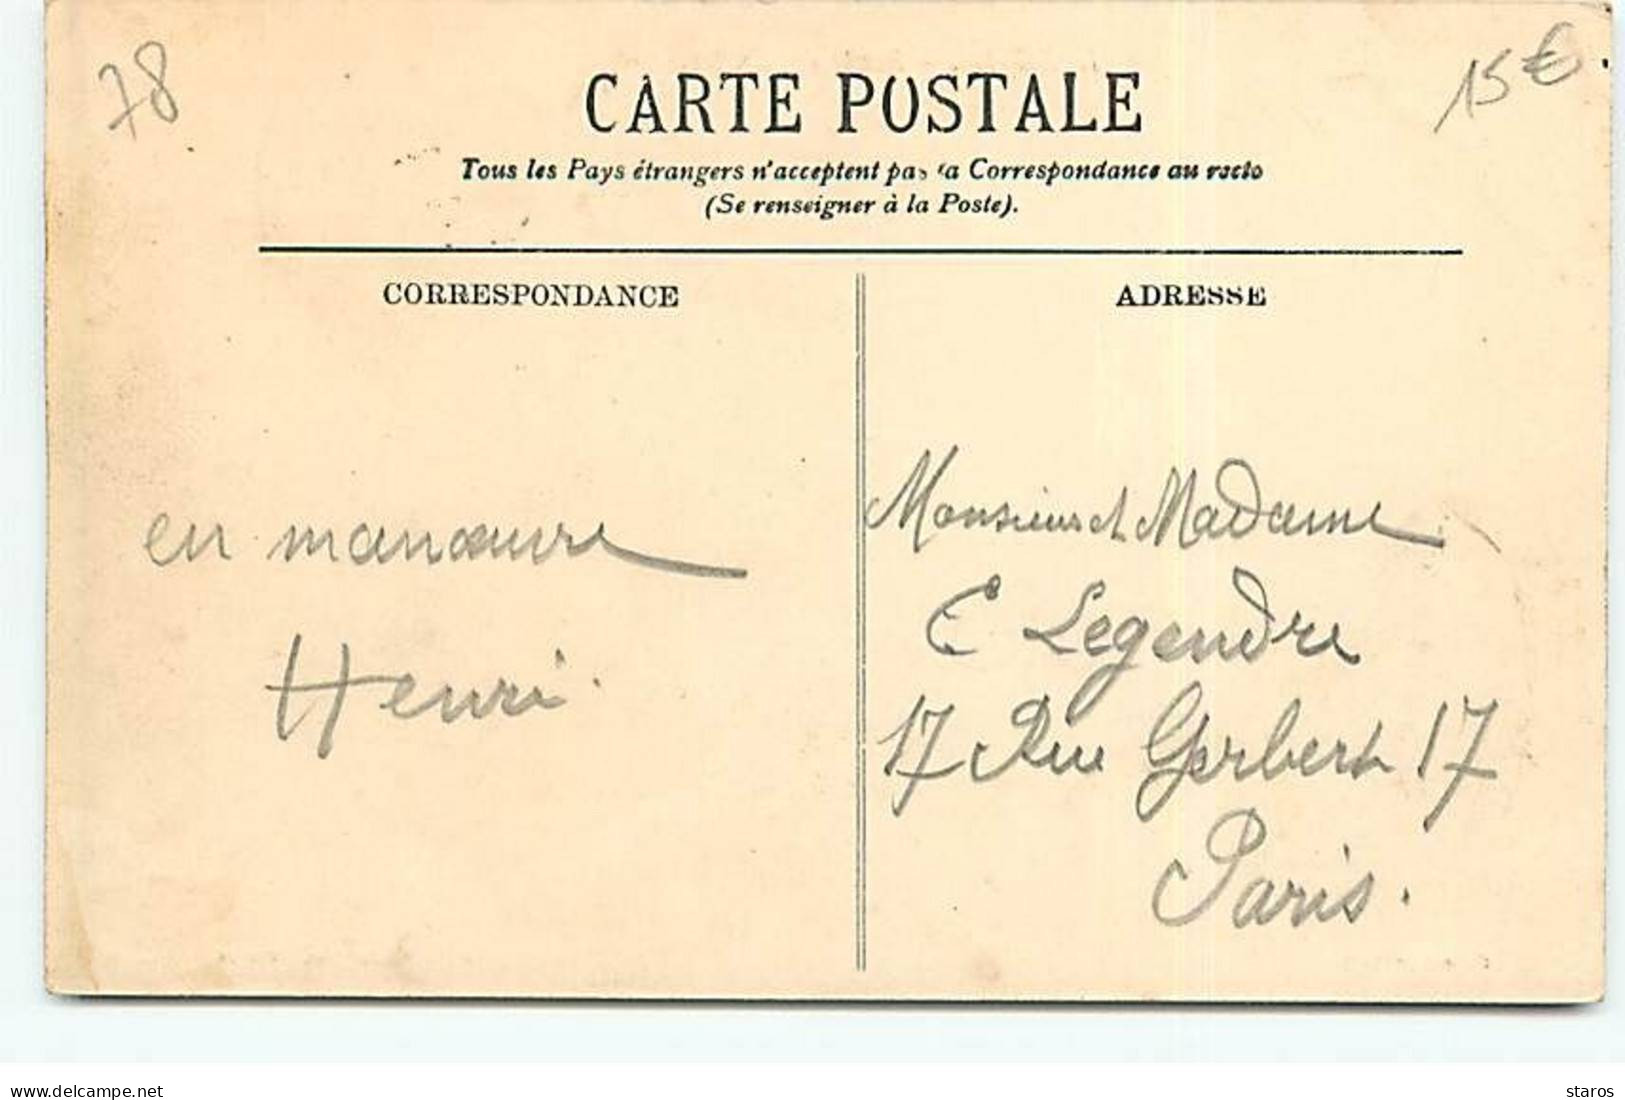 78
15€
CARTE POSTALE
Tous les Pays étrangers n'acceptent pas la Correspondance au recto
(Se renseigner à la Poste).
CORRESPONDANCE
ADRESSE
en manœuvre
Henri.
Monsieur et Madame
E Legendre
17 Rue Gerbert 17
Paris.
www.delcampe.net
staros